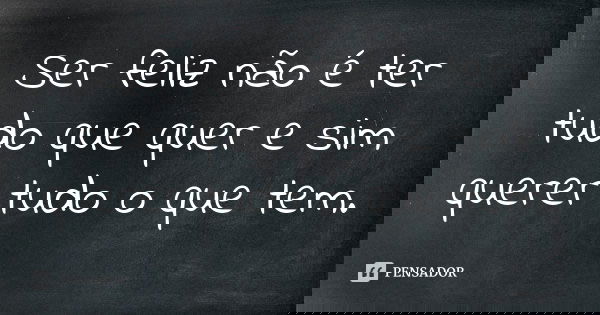 Ser feliz não é ter
tudo que quer e sim
querer tudo o que tem.
PENSADOR